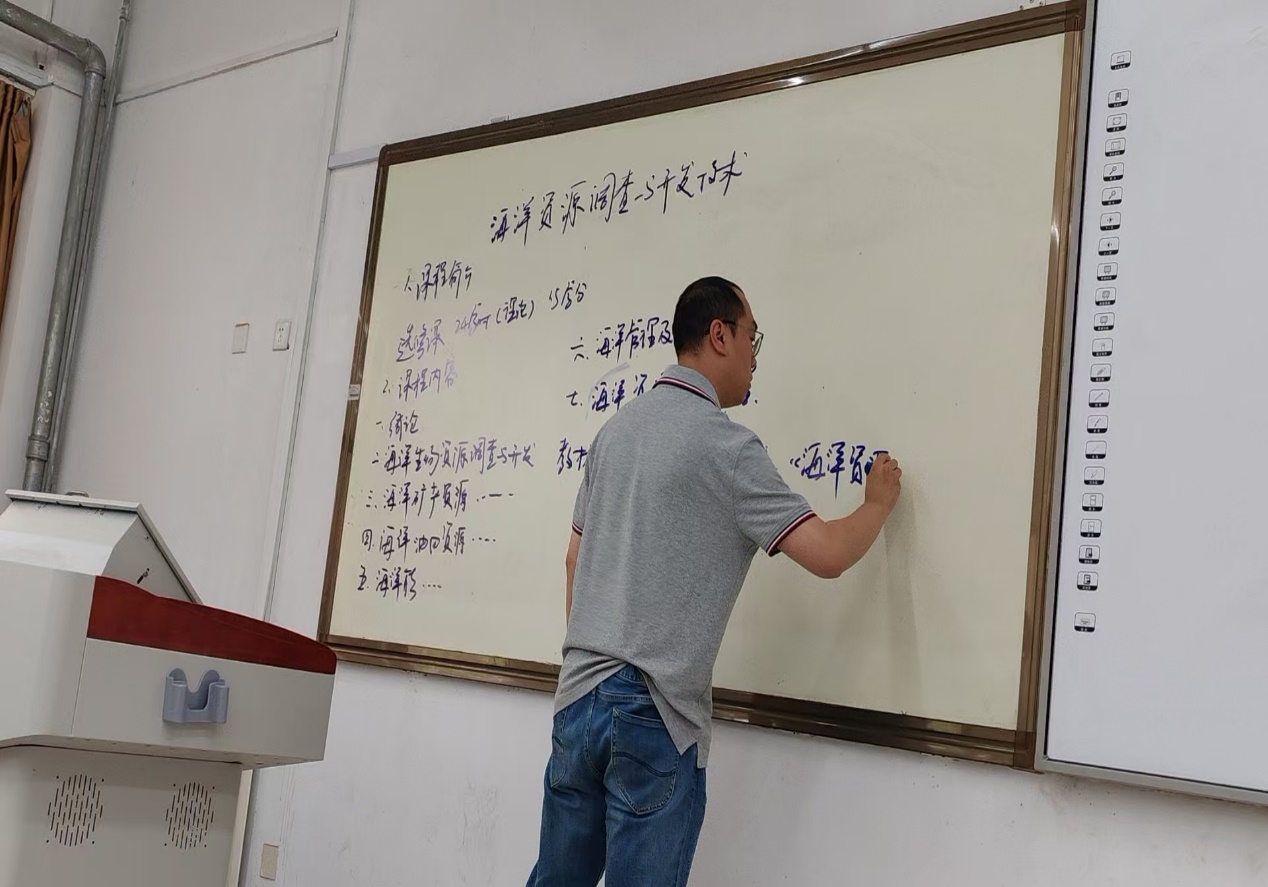 海洋资源调查与开发技术
1.课程简介
选修课 24学时(理论) 1.5学分
2.课程内容
一.绪论
二.海洋生物资源调查与开发
三.海洋矿产资源.……
四.海洋油田资源.……
五.海洋能……
六.海洋管理及
七.海洋
教材
《海洋资源